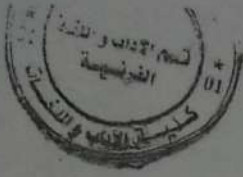 قسم الآداب و اللغة
الفرنسية
كليـــة الآداب و اللغـــات
* 01